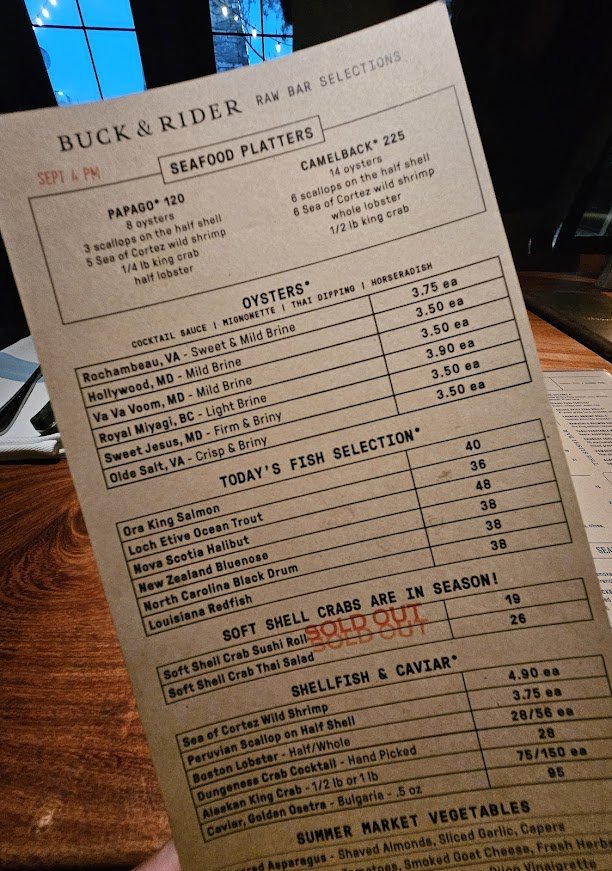 BUCK & RIDER RAW BAR SELECTIONS
SEPT 4 PM
SEAFOOD PLATTERS
PAPAGO* 120
8 oysters
3 scallops on the half shell
5 Sea of Cortez wild shrimp
1/4 lb king crab
half lobster
CAMELBACK* 225
14 oysters
6 scallops on the half shell
6 Sea of Cortez wild shrimp
whole lobster
1/2 lb king crab
OYSTERS*
COCKTAIL SAUCE | MIGNONETTE | THAI DIPPING | HORSERADISH
Rochambeau, VA - Sweet & Mild Brine 3.75 ea
Hollywood, MD - Mild Brine 3.50 ea
Va Va Voom, MD - Mild Brine 3.50 ea
Royal Miyagi, BC - Light Brine 3.90 ea
Sweet Jesus, MD - Firm & Briny 3.50 ea
Olde Salt, VA - Crisp & Briny 3.50 ea
TODAY'S FISH SELECTION*
Ora King Salmon 40
Loch Etive Ocean Trout 36
Nova Scotia Halibut 48
New Zealand Bluenose 38
North Carolina Black Drum 38
Louisiana Redfish 38
SOFT SHELL CRABS ARE IN SEASON!
Soft Shell Crab Sushi Roll 19
SOLD OUT
SOLD OUT
Soft Shell Crab Thai Salad 26
SHELLFISH & CAVIAR*
Sea of Cortez Wild Shrimp 4.90 ea
Peruvian Scallop on Half Shell 3.75 ea
Boston Lobster - Half/Whole 28/56 ea
Dungeness Crab Cocktail - Hand Picked 28
Alaskan King Crab - 1/2 lb or 1 lb 75/150 ea
Caviar, Golden Osetra - Bulgaria - .5 oz 95
SUMMER MARKET VEGETABLES
Asparagus - Shaved Almonds, Sliced Garlic, Capers
Tomatoes, Smoked Goat Cheese, Fresh Herbs
Vinaigrette